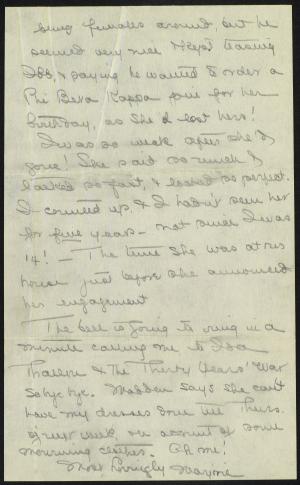 being females around, but he
seemed very nice & kept teasing
Ibb, & saying he wanted to order a
Phi Beta Kappa pin for her
birthday, as she'd lost hers!
I was so weak after she'd
gone! She said so much &
talked so fast, & looked so perfect.
I counted up, & I hadn't seen her
for five years - not since I was
14! - The time she was at our
house just before she announced
her engagement
The bell is going to ring in a
minute calling me to
& The Thirty Years' War
So bye bye. Madden says she can't
have my dresses done till Thurs.
of next week on account of some
mourning clothes. Oh me!
Most lovingly